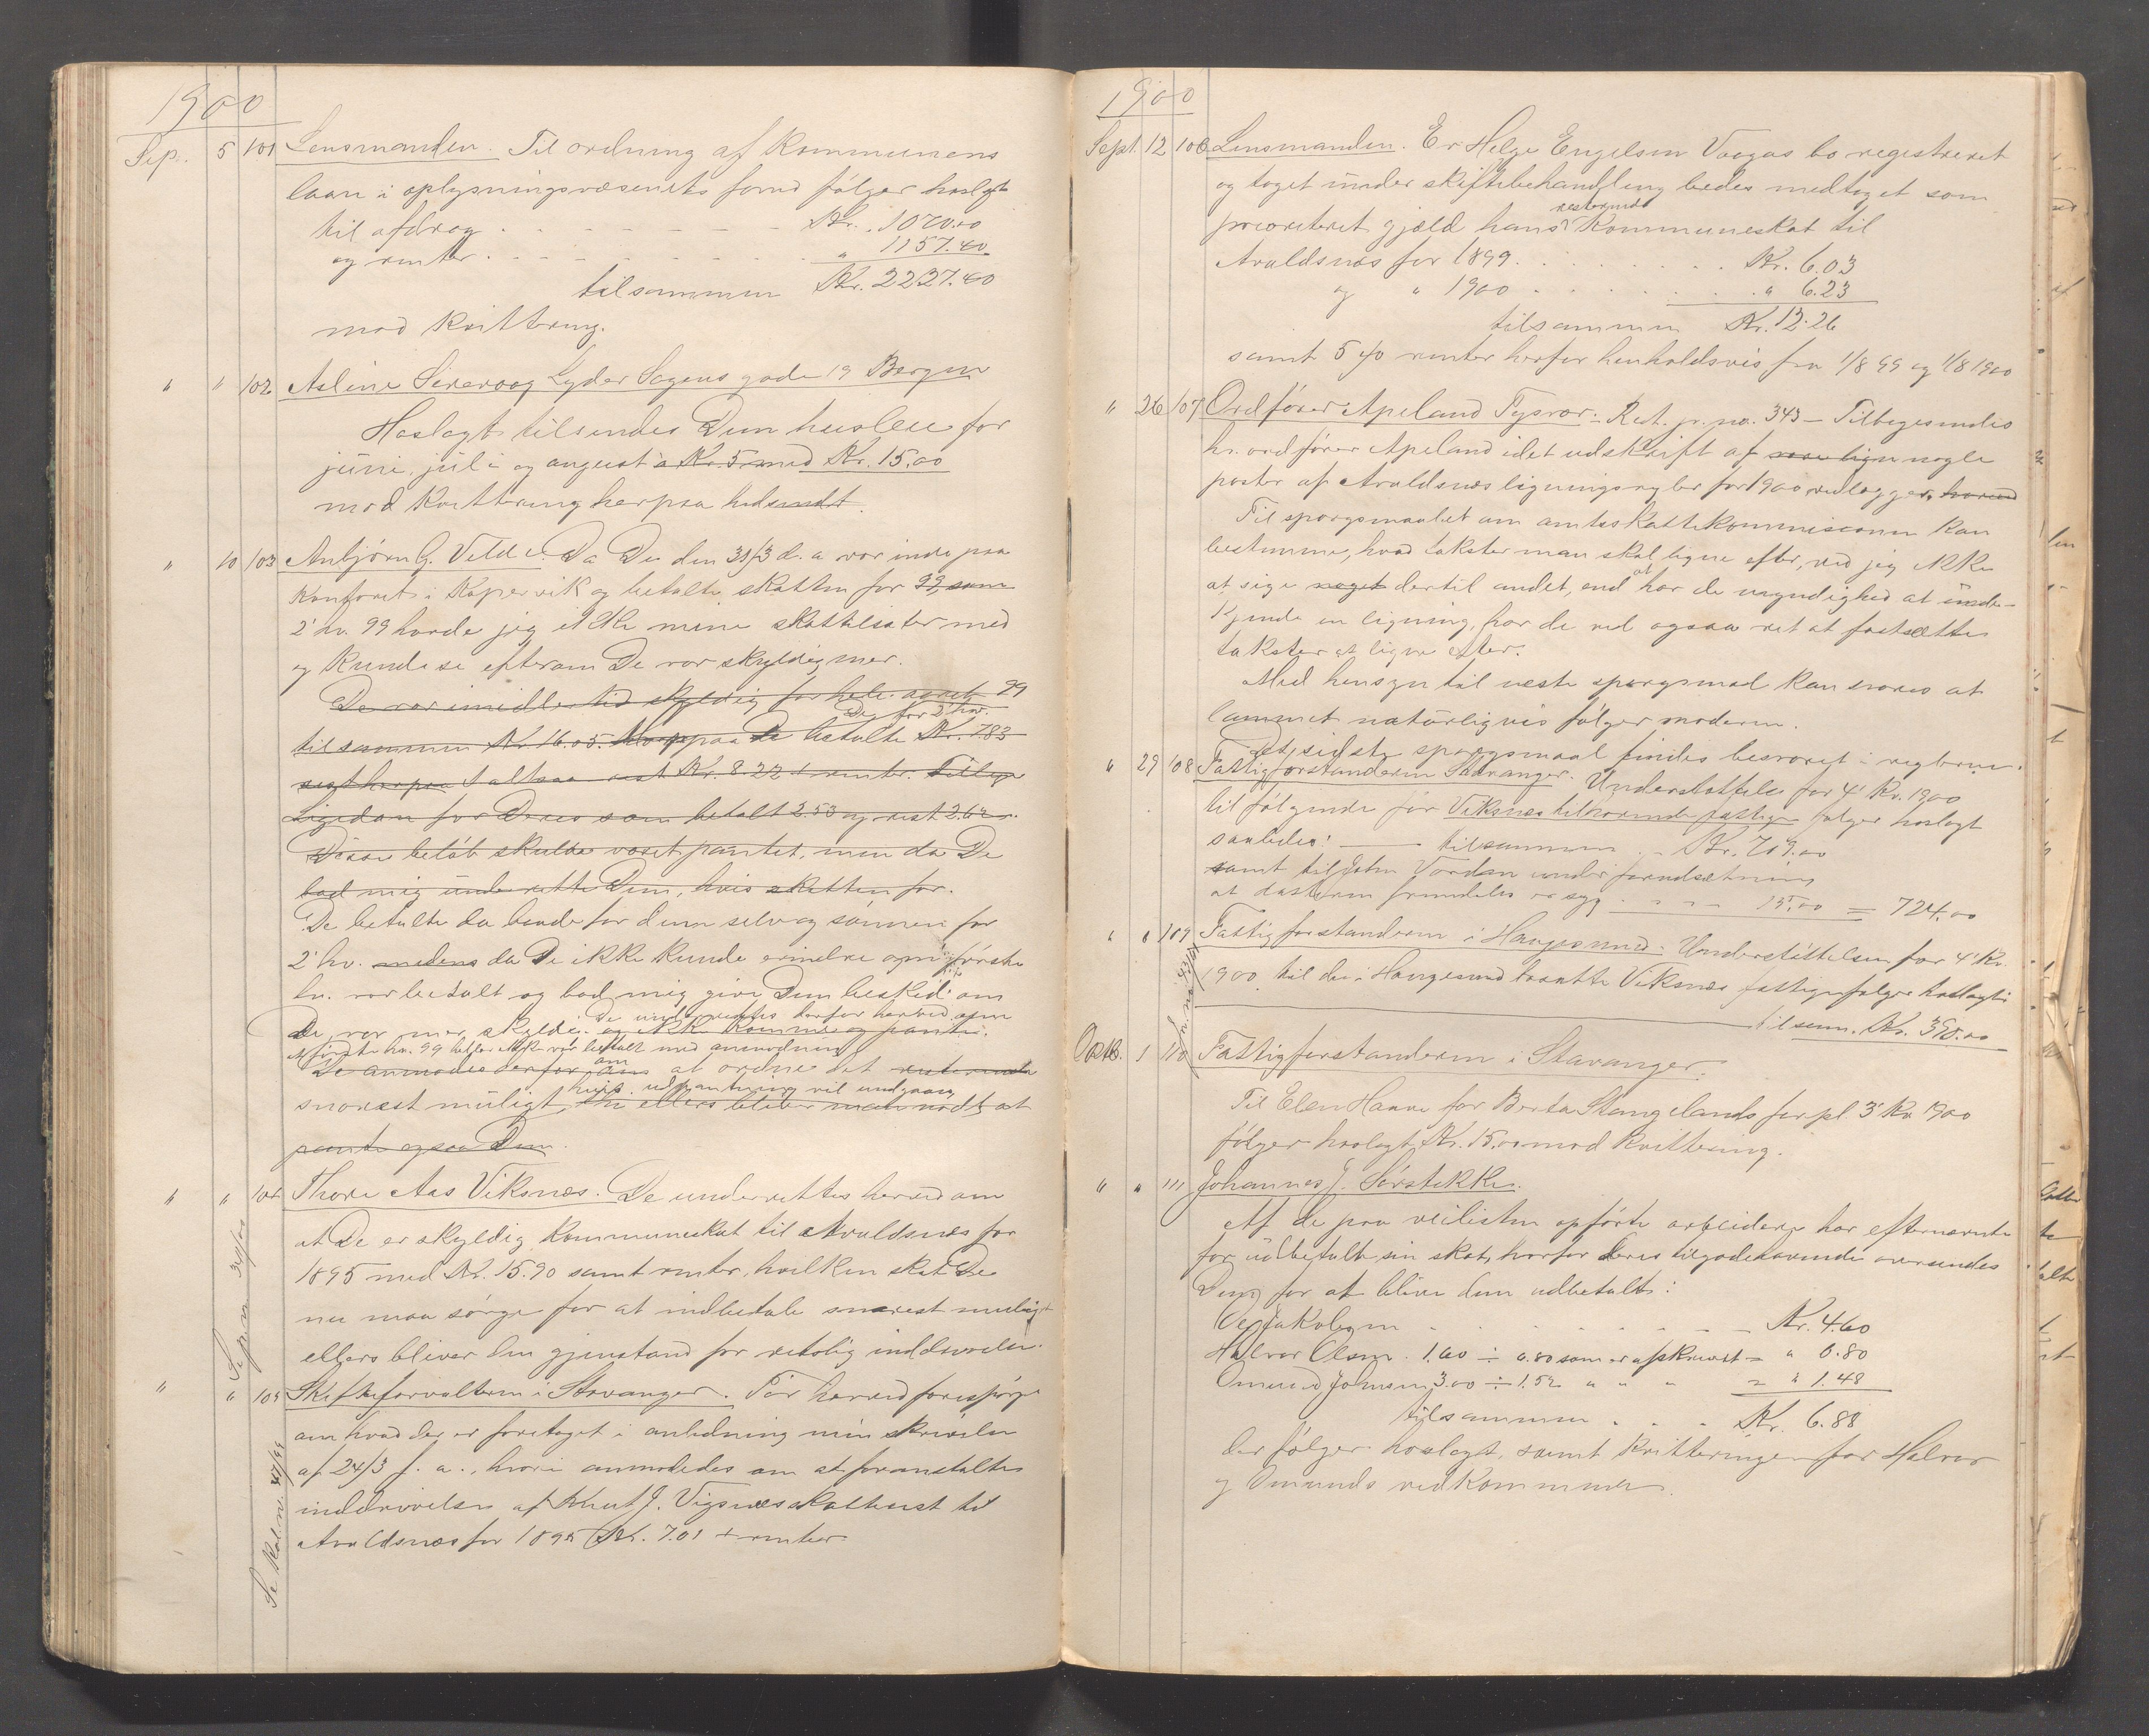 1900
Sep. 5 101 Lensmanden. Til ordning af Kommunens
laan i oplysningsvæsenets fond følger hoslagt
til afdrag Kr. 1070.00
og renter " 1157.40
tilsammen Kr. 2227.40
mod Kvittering.
" " 102 Asline Sevevaag Lyder Sagens gade 19 Bergen
Hoslagt tilsendes Dem husleie for
juni, juli og august à Kr. 5 med Kr. 15,00
mod Kvittering herpaa
" 10 103 Anbjørn G. Velde. Da De den 31/3 d. a. var inde paa
Kontoret i Kopervik og betalte skatten for 99, som
2' hv. 99 havde jeg ikke mine skattelister med
og Kunde se efter om De var skyldig mer.
De var imidlertid skyldig for hele aaret 99
De for 2' hv.
tilsammen Kr. 16.05. Herpaa De betalte Kr. 7.83
rest herpaa altsaa rest Kr. 8.22 + renter.
Ligedan for Deres søn betalt 2.53 og rest 2.62.
Disse beløb skulde været pantet, men da De
bad mig underrette Dem, hvis skatten for.
De betalte da baade for dem selv og sønnen for
2' hv. medens da De ikke Kunde erindre om første
hv. var betalt og bad mig give Dem besked om
De underrettes derfor herved om
De var mer skyldig og ikke Komme og pante.
at første hv. 99 heller ikke var betalt med anmodning
De anmodes derfor om at ordne det resterende
hvis udpantning vil undgaaes
snarest muligt, da ellers bliver man nødt at
pante ogsaa Dem.
" " 104 Thore Aas Viksnes. De underrettes herved om
at De er skyldig Kommuneskat til Avaldsnes for
1895 med Kr. 15.90 samt renter, hvilken skat De
nu maa sørge for at indbetale snarest muligt
ellers bliver den gjenstand for retslig inddrivelse.
" " 105 Skifteforvalteren i Stavanger. Tør herved forespørge
om hvad der er foretaget i anledning min skrivelse
af 24/3 f. a., hvori anmodedes om at foranstalte
inddrivelse af Knut J. Vigsnes skatterest til
Avaldsnes for 1895 Kr. 7.01 + renter
1900
Sept. 12 106 Lensmanden. Er Helge Engelsen Vaagas bo registreret
og taget under skiftebehandling bedes medtaget som
resterende
prioriteret gjæld hans Kommuneskat til
Avaldsnes for 1899 Kr. 6.03
og " 1900 " 6.23
tilsammen Kr. 12.26
samt 5 % renter herfor henholdsvis fra 1/8 99 og 1/8 1900
" 26 107 Ordfører Apeland Tysvær. Ret. jr. no. 343 – Tilbagesendes
hr. ordfører Apeland idet udskrift af nogle
poster af Avaldsnes ligningsregler for 1900 vedlægges
Til spørgsmaalet om amtsskattekommissionen Kan
bestemme, hvad takster man skal ligne efter, ved jeg ikke
at sige noget dertil andet, end at har de myndighed at under-
Kjende en ligning, har de vel ogsaa ret at fastsætte
takster at ligne efter.
Med hensyn til næste spørgsmaal Kan svares at
lammet naturligvis følger moderen.
Det sidste spørgsmaal findes besvaret i reglerne.
" 29 108 Fattigforstanderen Stavanger. Understøttelse for 4' Kv. 1900
til følgende for Viksnes tilhørende fattige følger hoslagt
saaledes: tilsammen Kr. 709.00
samt til John Vordan under forudsætning
at datteren fremdeles er syg 15,00 = 724.00
" " 109 Fattigforstanderen i Haugesund. Understøttelsen for 4' Kv.
1900 til de i Haugesund bosatte Viksnes fattige følger hoslagt
tilsam. Kr. 398.00
Oktb. 1 110 Fattigforstanderen i Stavanger.
Til Elen Haave for Berta Stangelands forpl 3' Kv 1900
følger hoslagt Kr. 15.00 mod Kvittering.
" " 111 Johannes J. Sørstokke.
Af de paa veilisten opførte arbeidere har efternævnte
for udbetalt sin skat, hvorfor deres tilgodehavende oversendes
Dem for at blive dem udbetalt:
Kr. 4.60
Halvor Olsen 1.60 ÷ 0.80 som er afskrevet = " 0.80
Omund Johnsen 3.00 ÷ 1.52 " " " = " 1.48
tilsammen Kr. 6.88
der følger hoslagt, samt Kvitteringer for Halvor
og Omunds vedkommende.